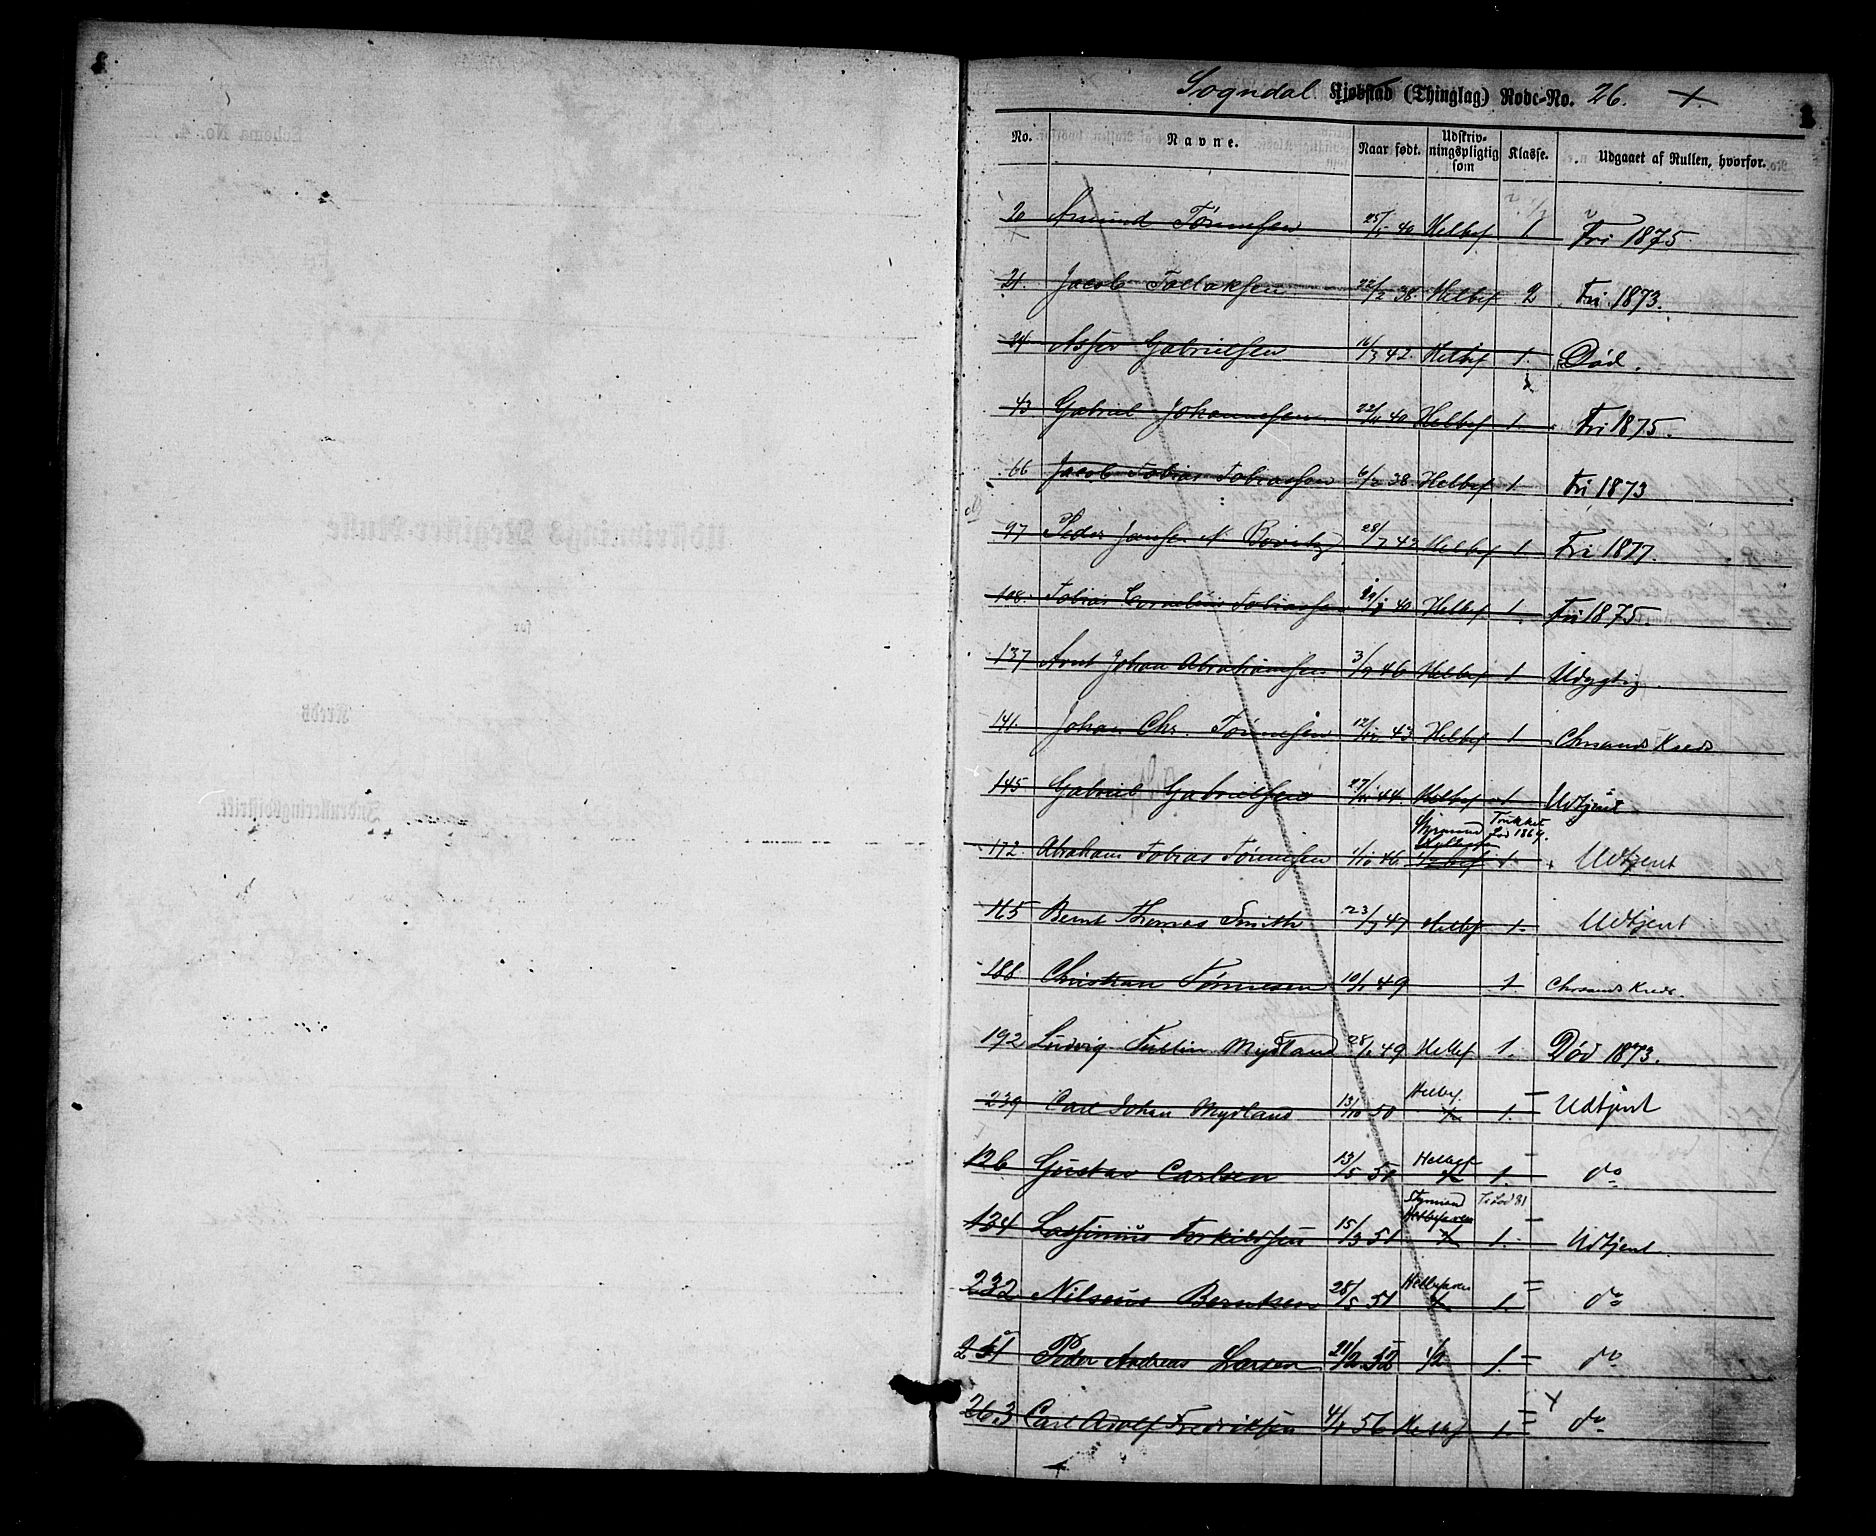 Sogndal Kjøbstad (Thinglag) Rode-No. 26. +
1
No. Navne. Naar født. Udskriv-ningspligtig som Klasse. Udgaaet af Rullen, hvorfor.
20 Amund Tønnesen 25/5 40 Helbef. 1. Fri 1875.
21. Jacob Tollaksen 22/2 38. Helbef 2 Fri 1873.
24 Asser Gabrielsen 16/3 42. Helbef 1. Død.
43 Gabriel Johannesen 22/11 40 Helbef 1. Fri 1875.
66 Jacob Tobias Tobiassen 6/2 38. Helbef 1. Fri 1873
97 Peder Jansen 28/7 42 Helbef 1. Fri 1877.
108. Tobias Cornelius Tobiassen 40 Helbef 1. Fri 1875.
137 Arnt Johan Abrahamsen 3/9 46 Helbef 1 Udygtig.
141. Johan Chr. Tønnesen 12/12 43 Helbef 1 Chrsands Kreds
145 Gabriel Gabrielsen 27/11 44 Helbef 1 Udtjent
Styrmand Trukket Lod 1869.
172. Abraham Tobias Tønnesen 1/10 46 Helbef 1 Udtjent
165 Bernt Thomas Smith 23/9 47 Helbef 1. Udtjent
188 Christian Tønnesen 10/1 49 1. Chrsands Kreds.
192 Ludvig Tullin Mydland 28/1 49 Helbef 1. Død 1873.
239 Carl Johan Mydland 13/10 50 Helbef. 1. Udtjent
126 Gustav Carlsen 13/5 50 Helbef 1. do
Styrmand Tr Lod 81
134 Torkildsen 15/3 51 Helbefaren 1. Udtjent.
232 Nilseus Berntsen 28/5 51 Helbefaren 1. do
251 Peder Andreas Larsen 52 1/2 1. do
263 Carl Adolf Fredriksen 4/1 56 Helbef 1. do